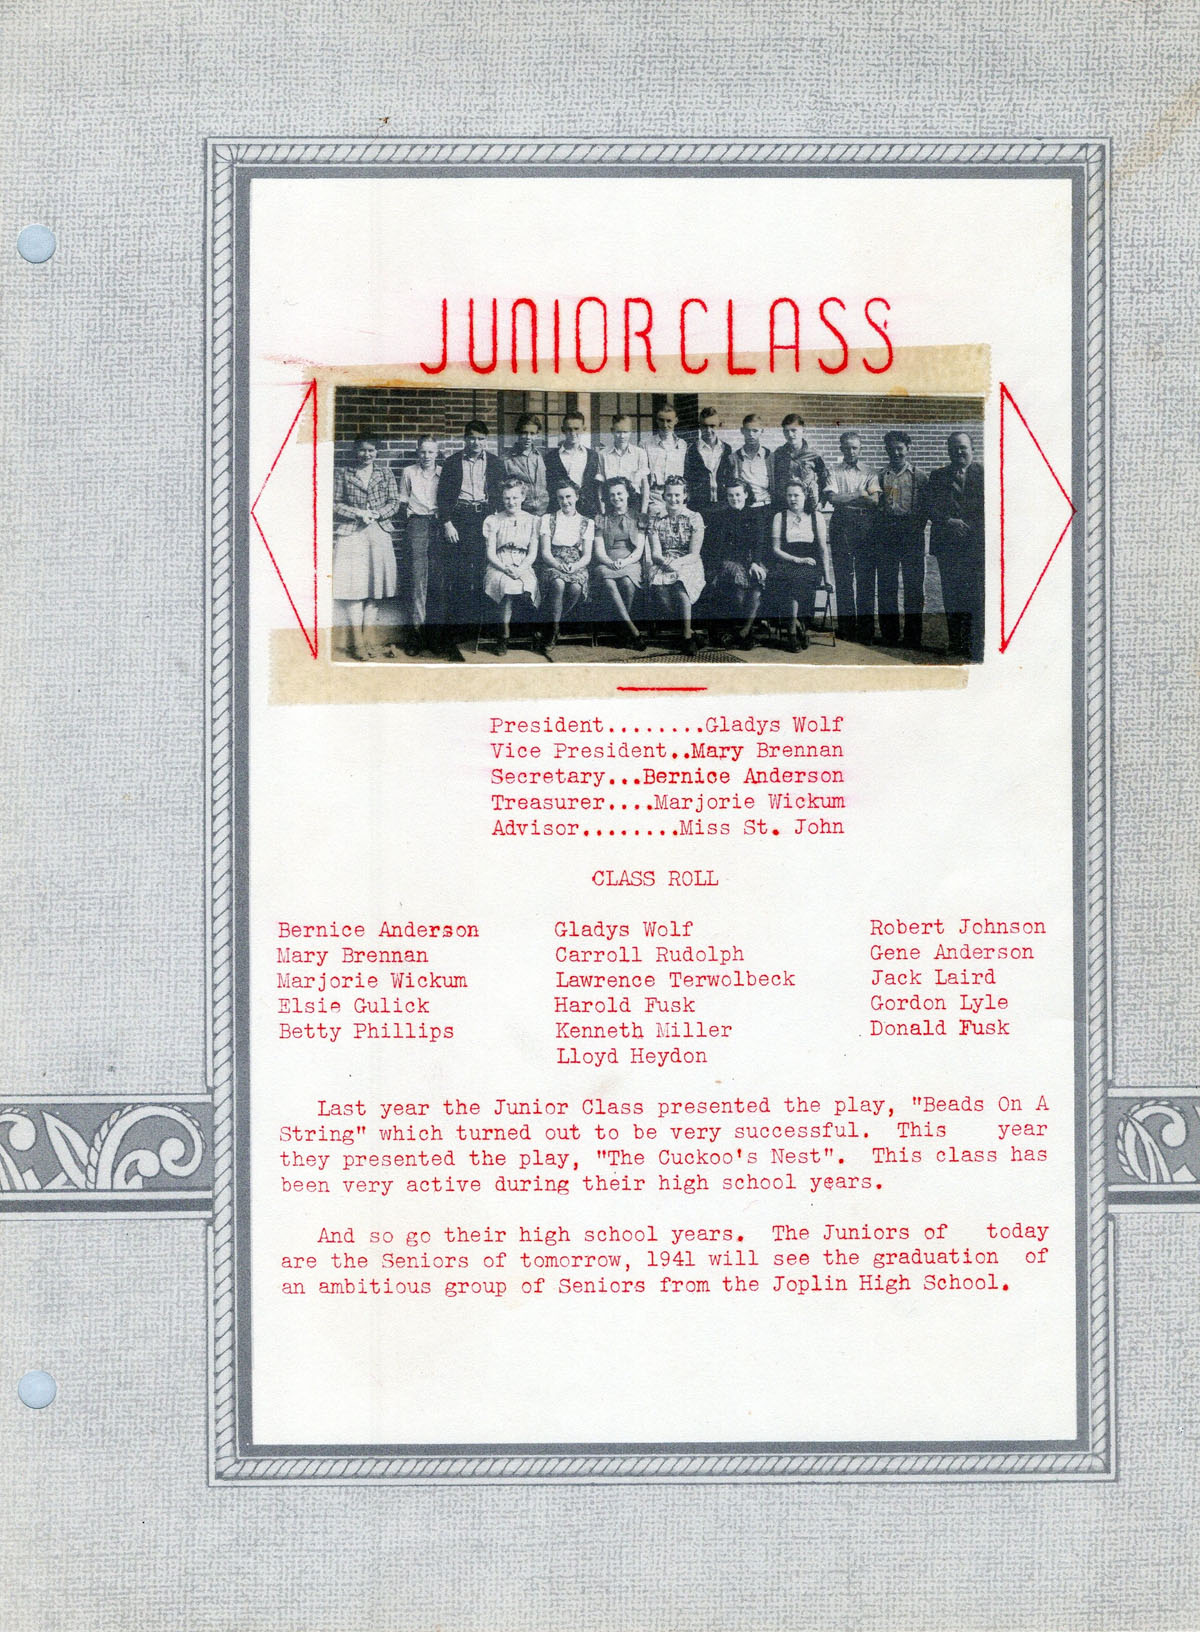 JUNIOR CLASS
President........Gladys Wolf
Vice President..Mary Brennan
Secretary...Bernice Anderson
Treasurer....Marjorie Wickum
Advisor........Miss St. John
CLASS ROLL
Bernice Anderson
Mary Brennan
Marjorie Wickum
Elsie Gulick
Betty Phillips
Gladys Wolf
Carroll Rudolph
Lawrence Terwolbeck
Harold Fusk
Kenneth Miller
Lloyd Heydon
Robert Johnson
Gene Anderson
Jack Laird
Gordon Lyle
Donald Fusk
Last year the Junior Class presented the play, "Beads On A
String" which turned out to be very successful. This year
they presented the play, "The Cuckoo's Nest". This class has
been very active during their high school years.
And so go their high school years. The Juniors of today
are the Seniors of tomorrow, 1941 will see the graduation of
an ambitious group of Seniors from the Joplin High School.